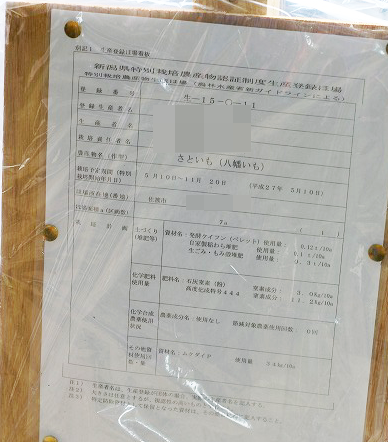 別記１　生産登録ほ場看板
新潟県特別栽培農産物認証制度生産登録ほ場
特別栽培農産物生産ほ場（農林水産省新ガイドラインによる）
登録番号　生－15－○－11
登録生産者名
生産者名
栽培責任者名
農産物名（作型）　さといも（八幡いも）
栽培予定期間（特別栽培開始年月日）　5月10日～11月20日　（平成27年　5月10日）
ほ場所在地（番地）　佐渡市
ほ場面積a（区画数）　7a　（　）
栽培計画
土づくり（堆肥等）　資材名：発酵ケイフン（ペレット）使用量：　0.12t/10a
自家製稲わら堆肥　使用量：
生ごみ・もみ殻堆肥　使用量：
化学肥料使用量　肥料名：石灰窒素（粉）　窒素成分：　3.0kg/10a
高度化成特号444　窒素成分：　kg/10a
化学合成農薬使用状況　農薬成分名：使用なし　節減対象農薬使用回数　0回
その他資材使用
資材名：　使用量　kg/10a